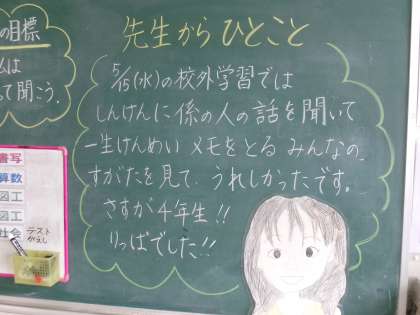 の目標
んは
って聞こう.
先生からひとこと
5/15(水)の校外学習では
しんけんに係の人の話を聞いて
一生けんめいメモをとる みんなの、
すがたを見て、うれしかったです。
さすが4年生!!
りっぱでした!!
書写
算数
図工
図工
社会
テスト
がえし